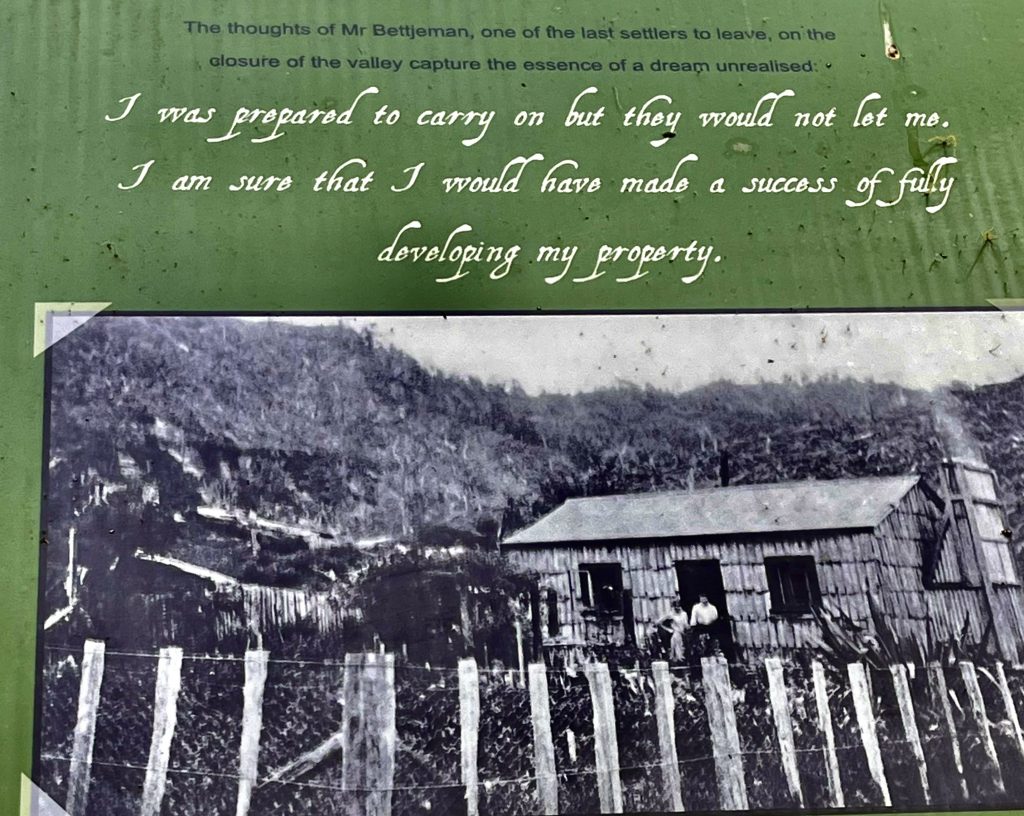 The thoughts of Mr Bettjeman, one of the last settlers to leave, on the
closure of the valley capture the essence of a dream unrealised:
I was prepared to carry on but they would not let me.
I am sure that I would have made a success of fully
developing my property.